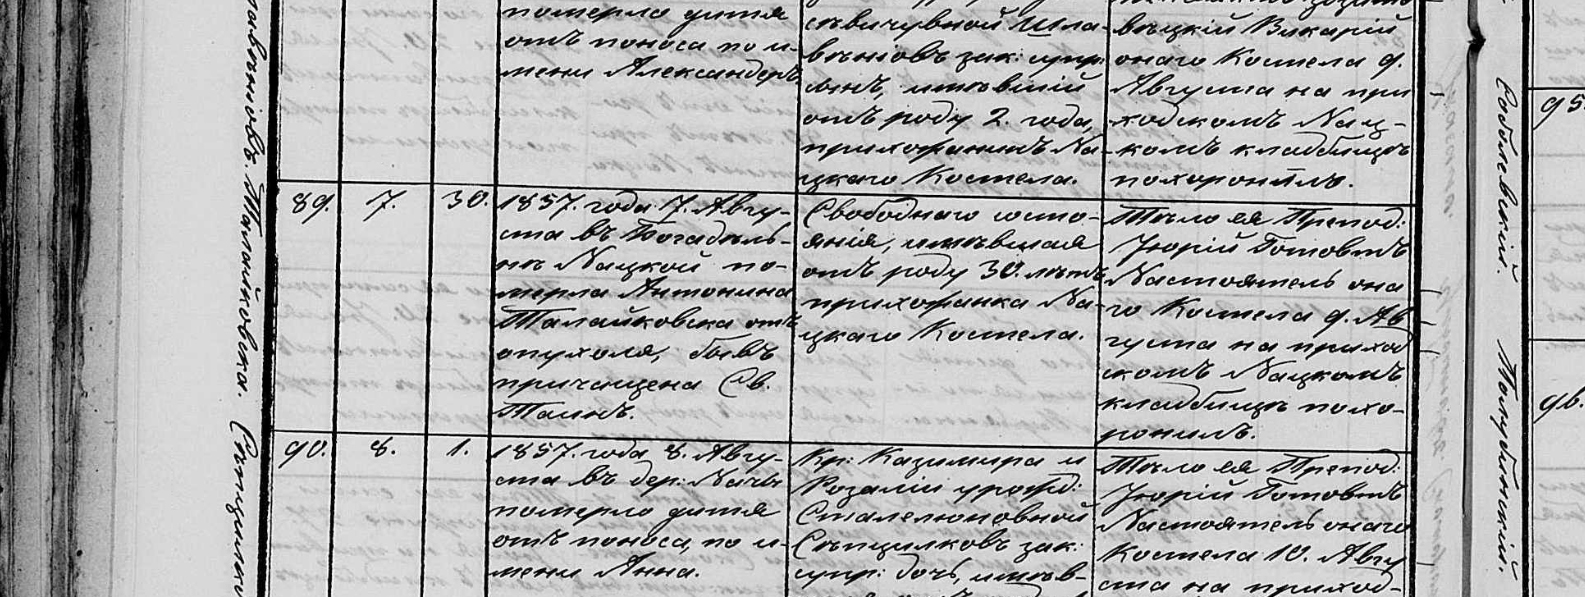 померло дитя
отъ поноса по и-
мени Александеръ
вѣніовъ зак: супр:
сынъ, имѣвшій
отъ роду 2. года,
прихожанинъ На-
цкаго Костела.
вѣцкій Викарій
онаго Костела 9.
Августа на при
ходскомъ Нац-
комъ кладбищѣ
похоронилъ.
89.
7.
30.
1857. года 7. Авгу-
ста въ Богадѣль-
нѣ Нацкой по-
мерла Антонина
Талайковска отъ
опухоля, бывъ
причащена Св.
Таинъ.
Свободнаго состо-
янія, имѣвшая
отъ роду 30. лѣтъ
прихожанка На-
цкаго Костела.
Тѣло ея Препод:
Юрій Готовтъ
Настоятель она
го Костела 9. Ав
густа на приход
скомъ Нацкомъ
кладбищѣ похо-
ронилъ.
90.
8.
1.
1857. года 8. Авгу-
ста въ дер: Начи
померло дитя
отъ поноса, по и-
мени Анна.
Кр: Казимира и
Розаліи урожд:
Сталелюновной
Сѣпцилковъ зак:
супр: дочь, имѣв-
Тѣло ея Препод:
Юрій Готовтъ
Настоятель онаго
Костела 10. Авгу
ста на приход-
Талайковска.
95.
96.